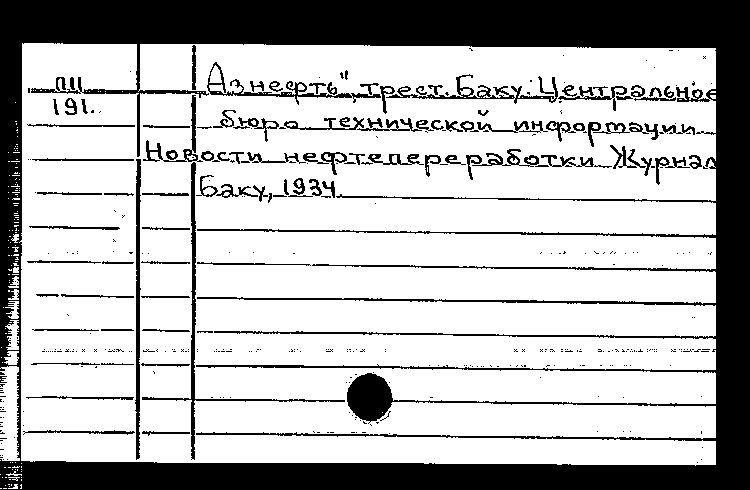 ПII
191.
„Азнефть", трест. Баку. Центральное
бюро технической информации
Новости нефтепереработки Журнал
Баку, 1934.